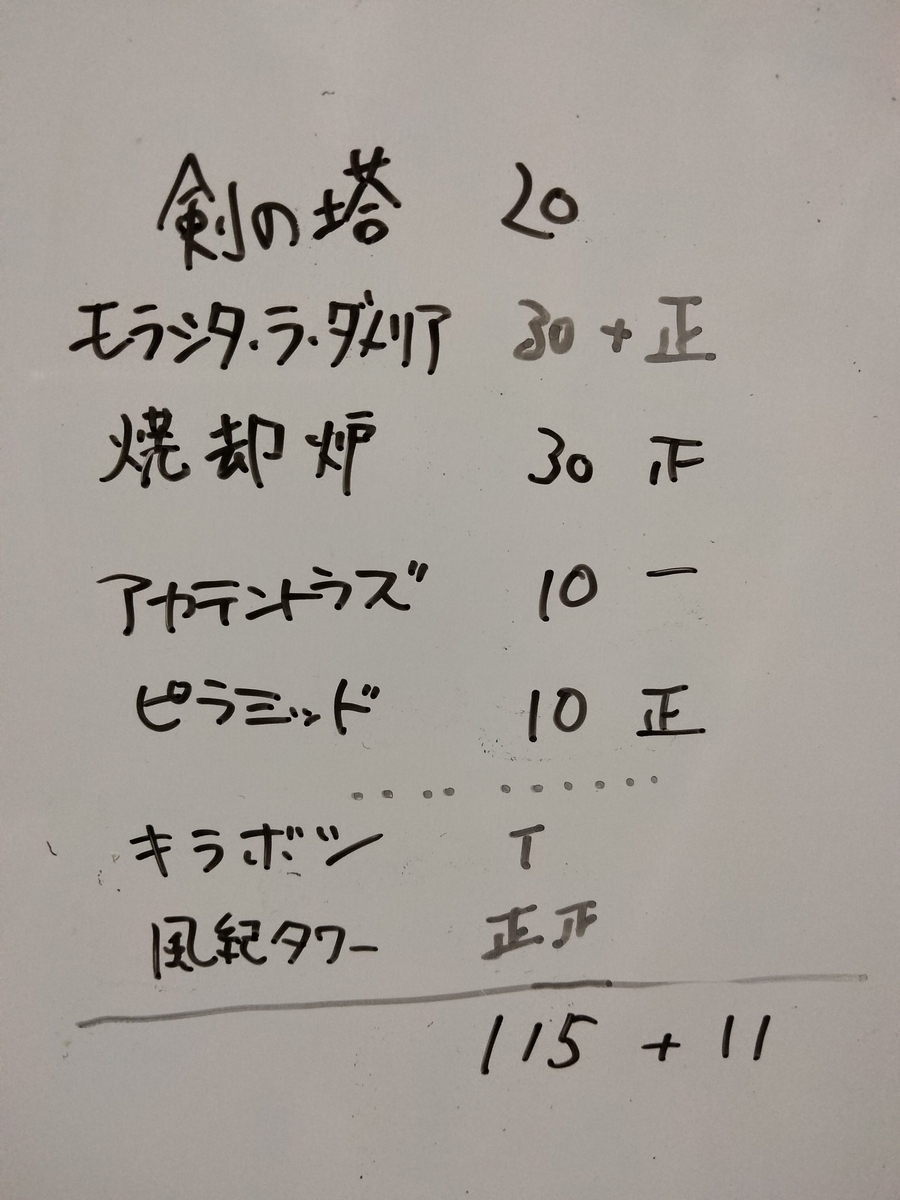 剣の塔 20
モラシタ・ラ・ダメリア 30 + 正
焼却炉 30 正
アカテントラズ 10 一
ピラミッド 10 正
・・・・ ・・・・・・
キラボツ T
風紀タワー 正正
115 + 11